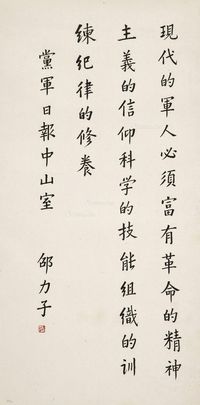 現代的軍人必須富有革命的精神
主義的信仰科学的技能組織的訓
練紀律的修養
黨軍日報中山室
邵力子